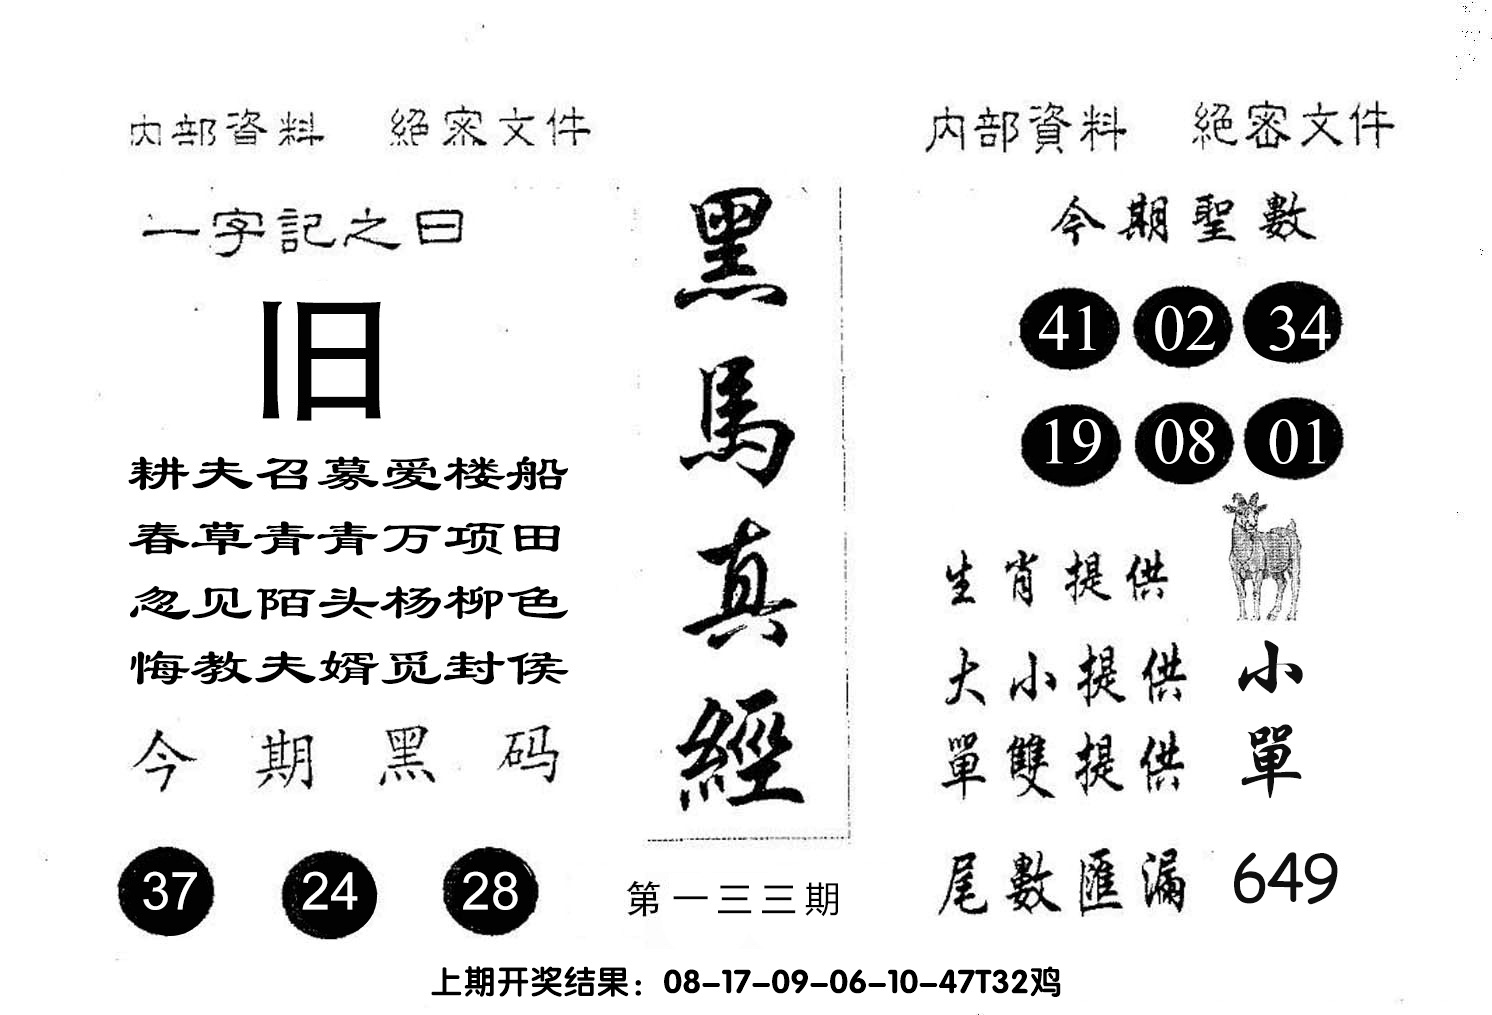 内部資料 絕密文件
一字記之曰
旧
耕夫召募爱楼船
春草青青万项田
忽见陌头杨柳色
悔教夫婿觅封侯
今期黑码
37 24 28
黑馬真經
第一三三期
内部資料 絕密文件
今期聖數
41 02 34
19 08 01
生肖提供
大小提供 小
單雙提供 單
尾數匯漏 649
上期开奖结果：08-17-09-06-10-47T32鸡